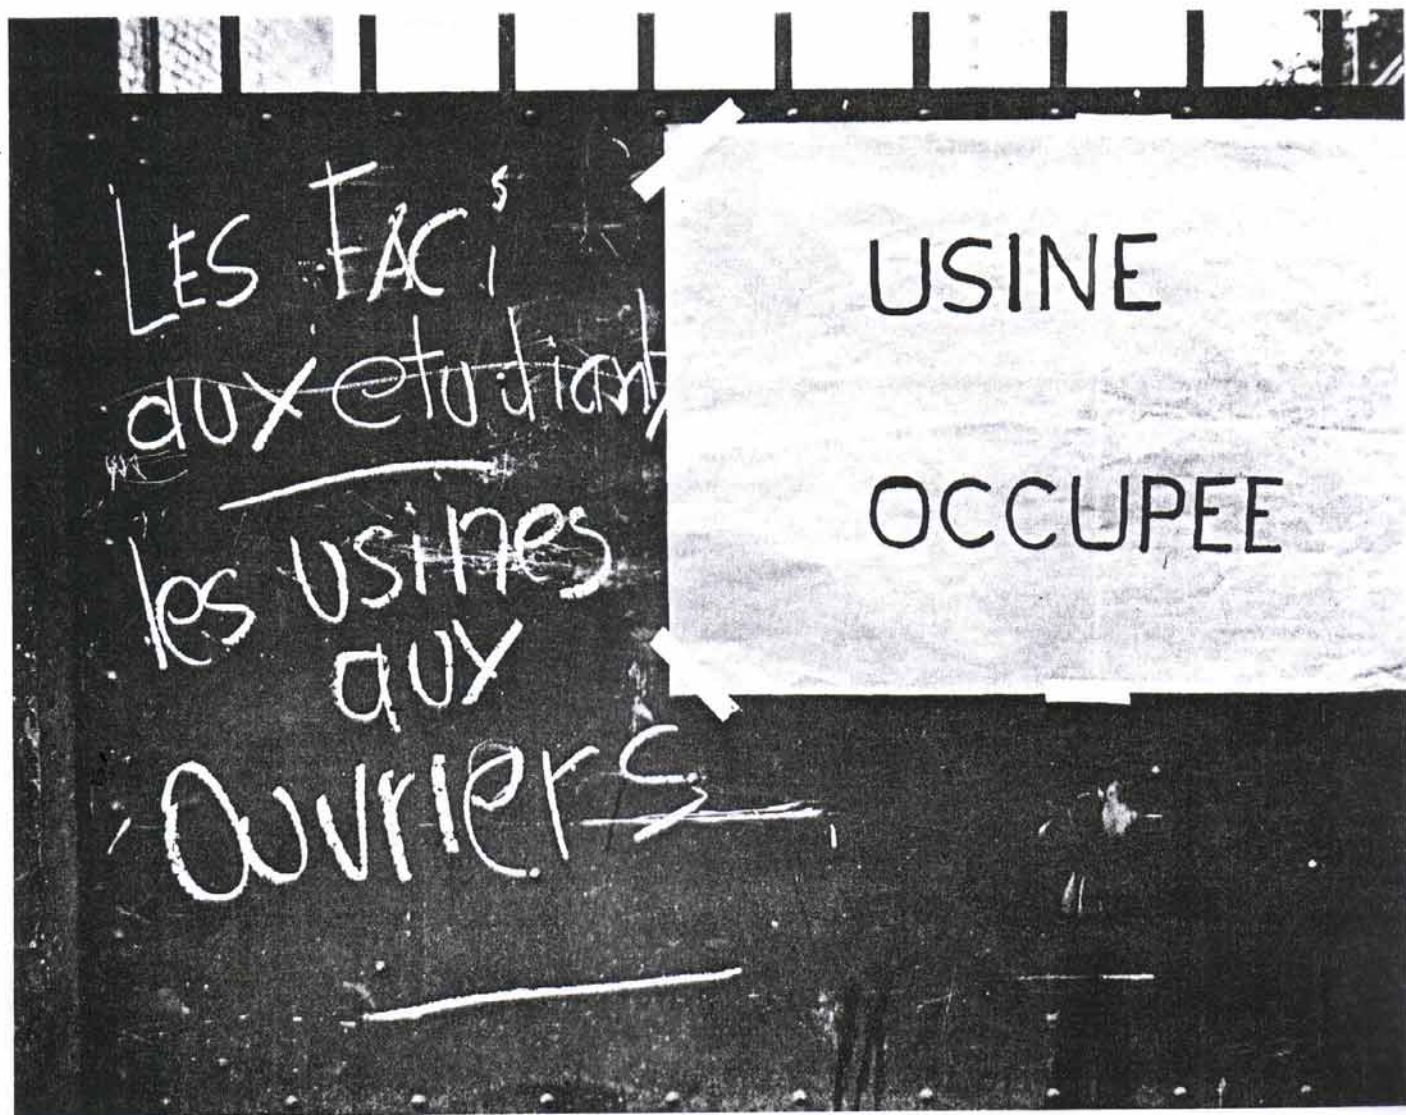 LES FACs
aux etudiants
les usines
aux
Ouvriers
USINE
OCCUPEE